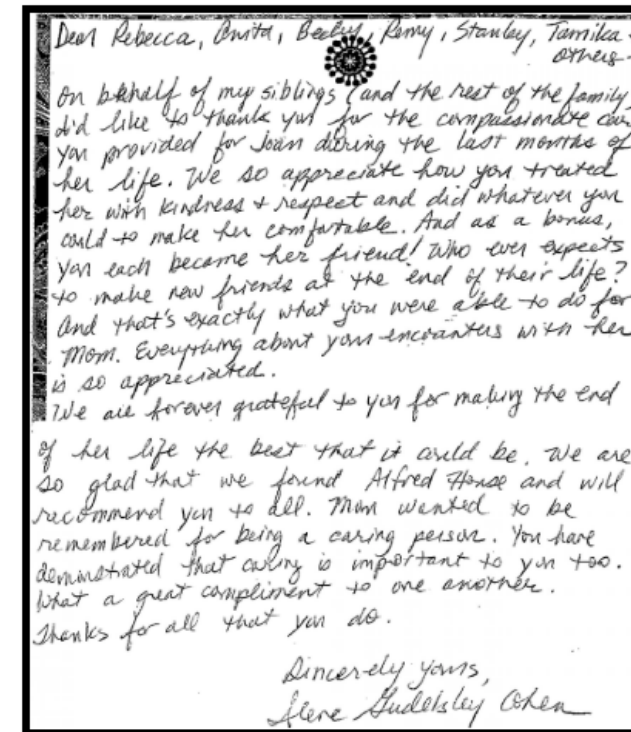 Dear Rebecca, Anita, Becky, Remy, Stanley, Tamika +
others -
On behalf of my siblings (and the rest of the family)
I'd like to thank you for the compassionate care
you provided for Joan during the last months of
her life. We so appreciate how you treated
her with kindness + respect and did whatever you
could to make her comfortable. And as a bonus,
you each became her friend! Who ever expects
to make new friends at the end of their life?
And that's exactly what you were able to do for
Mom. Everything about your encounters with her
is so appreciated.
We are forever grateful to you for making the end
of her life the best that it could be. We are
so glad that we found Alfred House and will
recommend you to all. Mom wanted to be
remembered for being a caring person. You have
deminstrated that caring is important to you too.
What a great compliment to one another.
Thanks for all that you do.
Sincerely yours,
Ilene Gudelsky Cohen